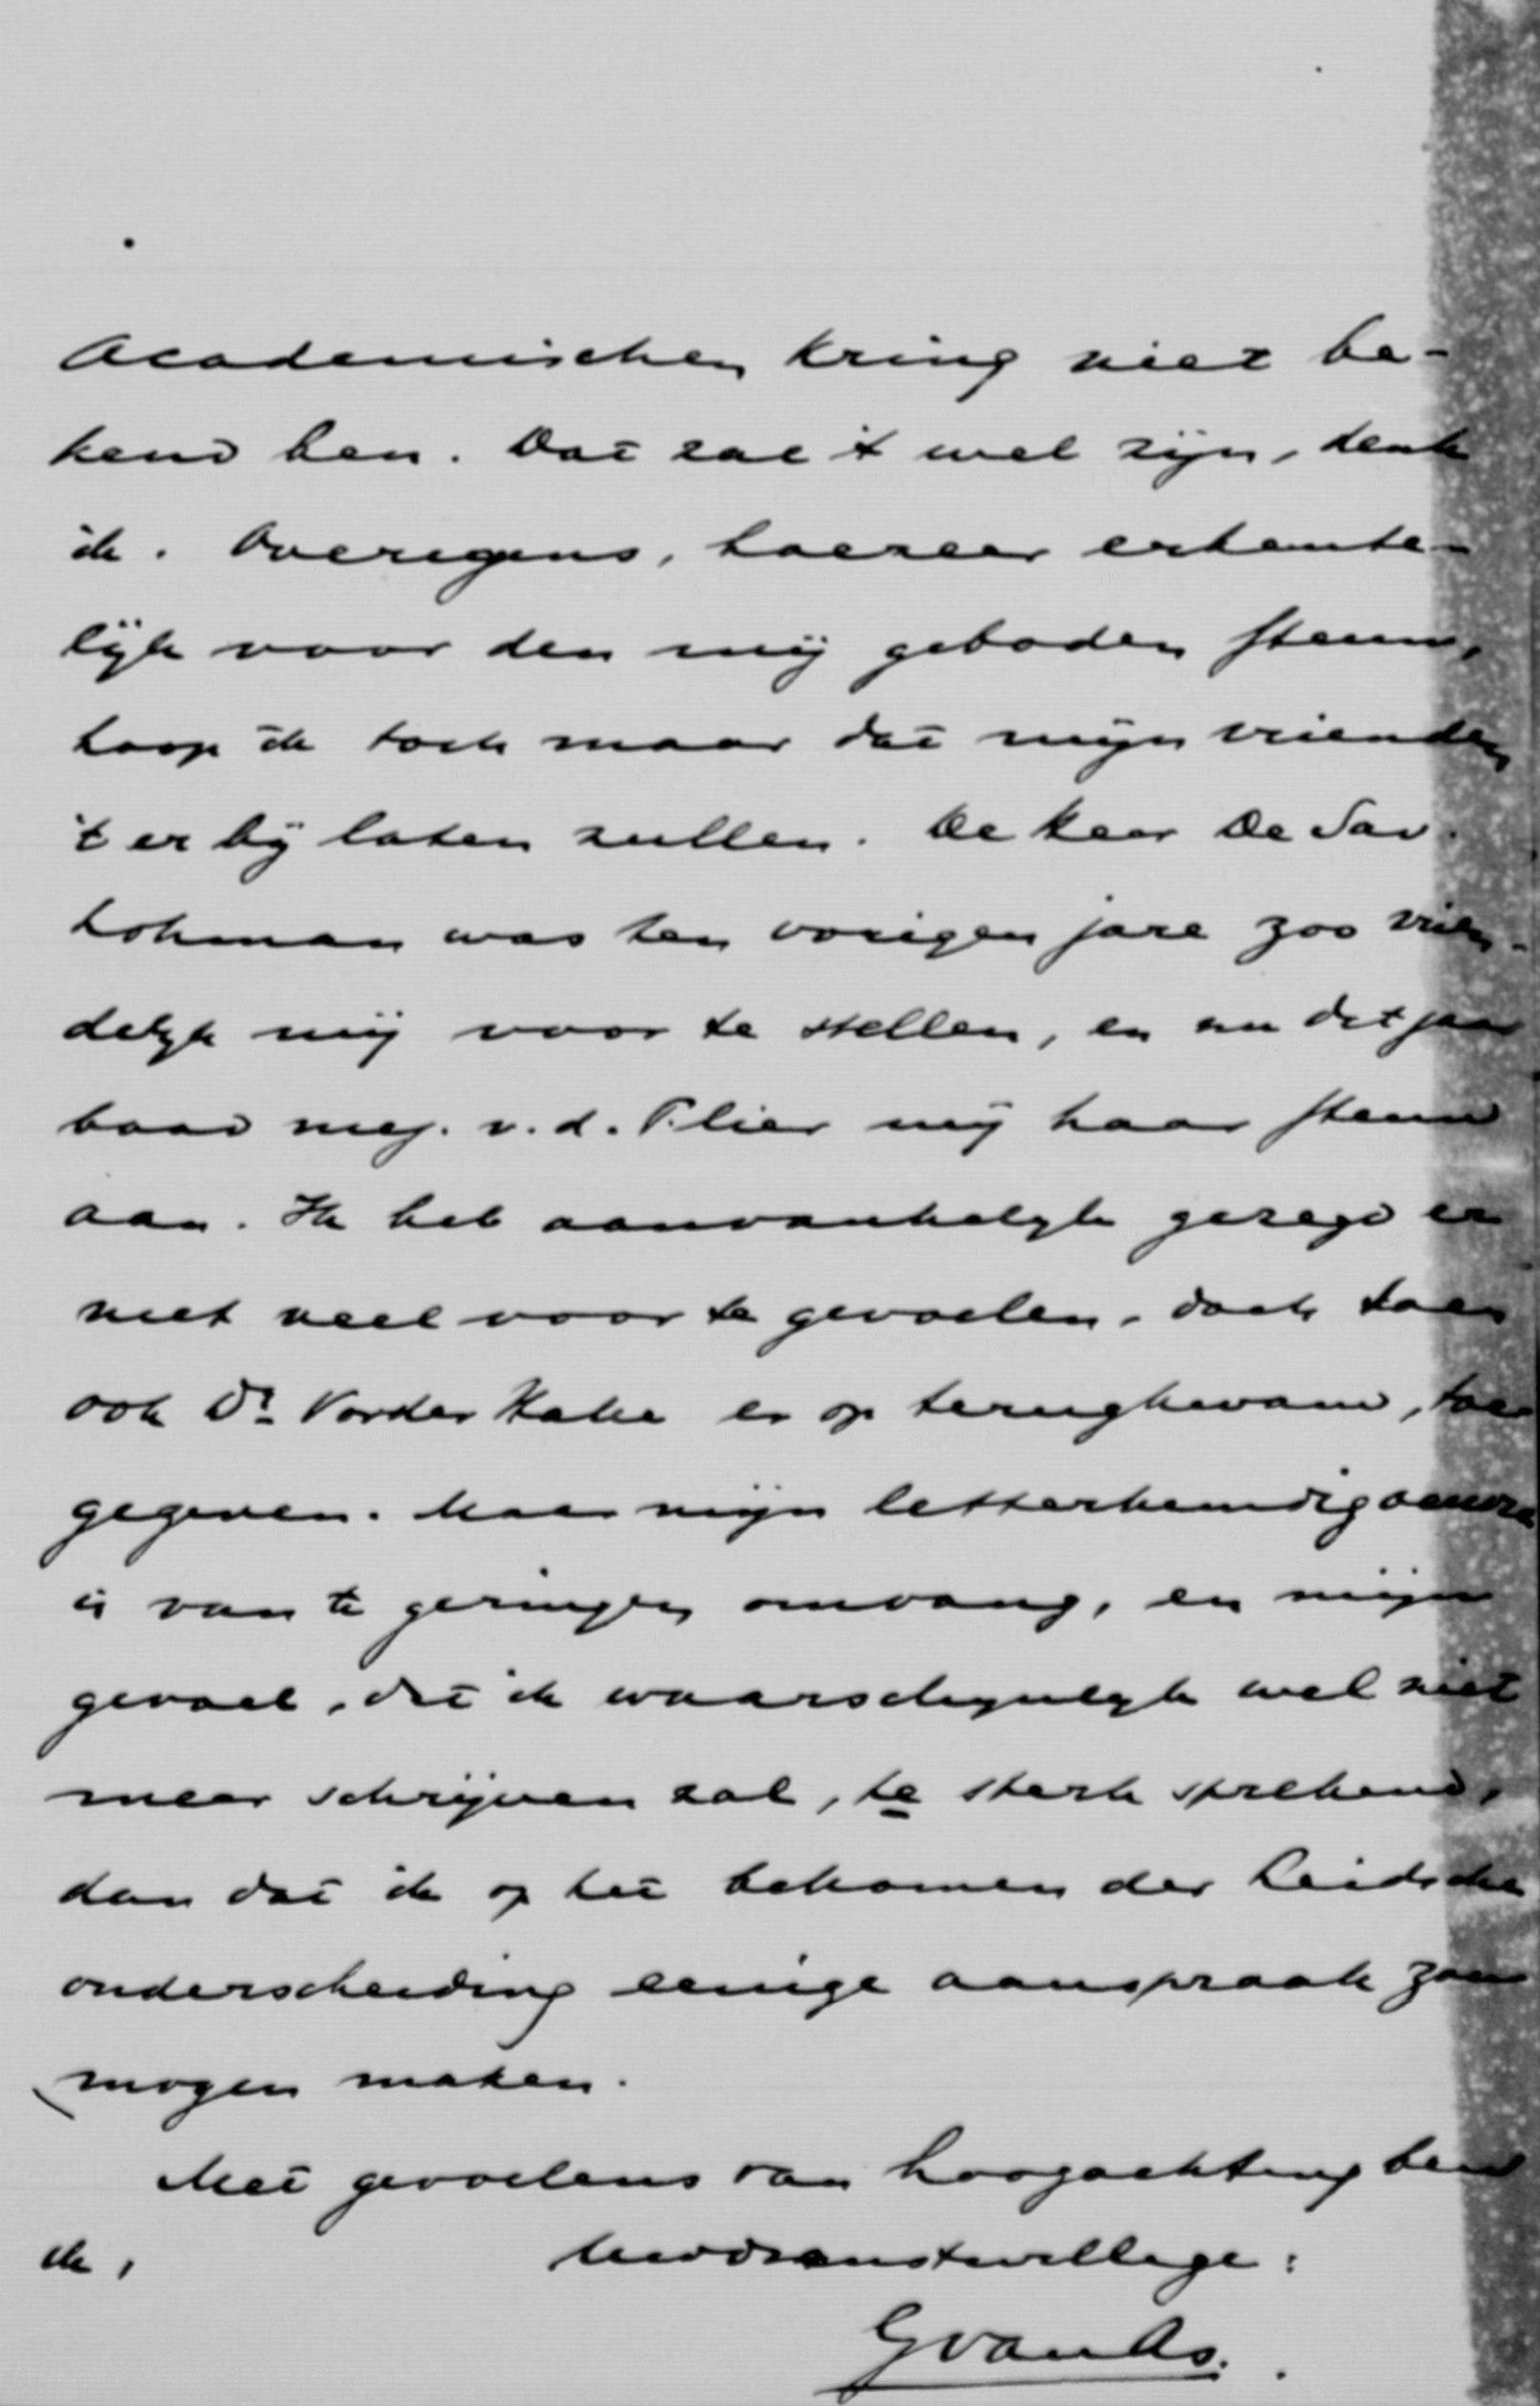 Academischen kring niet be-
kend ben. Dat zal 't wel zijn, denk
ik. Overigens, hoezeer erkente-
lijk voor den mij geboden steun,
hoop ik toch maar dat mijn vrienden
't er bij laten zullen. De heer De Sav.
Lohman was ten vorigen jare zoo vrien-
delijk mij voor te stellen, en nu dit jaar
bood mej. v.d. Flier mij haar steun
aan. Ik heb aanvankelijk gezegd er
niet veel voor te gevoelen, doch toen
ook Dr. Vorder Hake er op terugkwam, toe
gegeven. Maar mijn letterkundig oeuvre
is van te geringen omvang, en mijn
gevoel, dat ik waarschijnlijk wel niet
meer schrijven zal, te sterk sprekend,
dan dat ik op het bekomen der Leidsche
onderscheiding eenige aanspraak zou
mogen maken.
Met gevoelens van hoogachting ben
ik, Uwdienstwillige:
GvanAs.